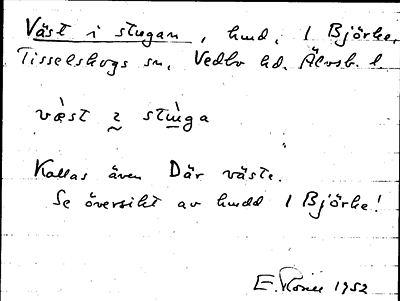 Väst i stugan, hmd, 1 Björke,
Tisselskogs sn, Vedbo hd. Älvsb. l
væ̀st ı̰ stu̱ǹga
Kallas även Där väste.
Se översikt av hmdd 1 Björke!
E. 1952